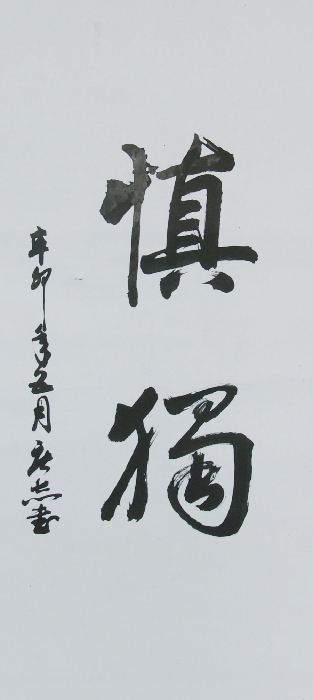 慎獨
辛卯年五月